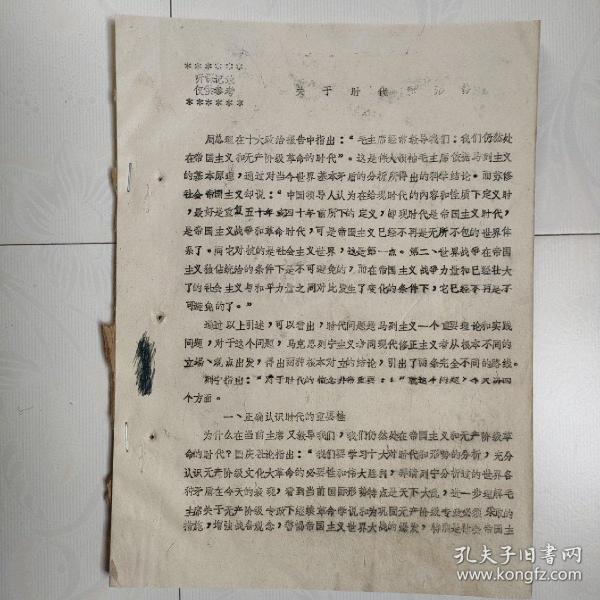 ******
听课记录
仅供参考
******
关于时代
周总理在十大政治报告中指出：“毛主席经常教导我们：我们仍然处
在帝国主义和无产阶级革命的时代”。这是伟大领袖毛主席依据马列主义
的基本原理，通过对当今世界基本矛盾的分析所得出的科学结论。而苏修
社会帝国主义却说：“中国领导人认为在给现时代的内容和性质下定义时
，最好是重复五十年或四十年前所下的定义，即现时代是帝国主义时代，
是帝国主义战争和革命的时代，可是帝国主义已经不再是无所不包的世界体
系了。同它对抗的是社会主义世界，这是第一点。第二、世界战争在帝国
主义独佔统治的条件下是不可避免的，而在帝国主义战争力量和已经壮大
了的社会主义与和平力量之间对比发生了变化的条件下，它已经不再是不
可避免的了。”
通过以上引述，可以看出，时代问题是马列主义一个重要理论和实践
问题，对于这个问题，马克思列宁主义者同现代修正主义者从根本不同的
立场、观点出发，得出两种根本对立的结论，引出了两条完全不同的路线。
列宁指出：“对于时代的
个方面。
一、正确认识时代的重要性
为什么在当前主席又教导我们，我们仍然处在帝国主义和无产阶级革
命的时代？国庆社论指出：“我们要学习十大对时代和形势的分析，充分
认识无产阶级文化大革命的必要性和伟大胜利，弄清列宁分析过的世界各
种矛盾在今天的表现，看到当前国际形势特点是天下大乱，进一步理解毛
主席关于无产阶级专政下继续革命学说和为巩固无产阶级专政必须采取的
措施，增强战备观念，警惕帝国主义世界大战的爆发，特别是社会帝国主
孔夫子旧书网
www.kongfz.com